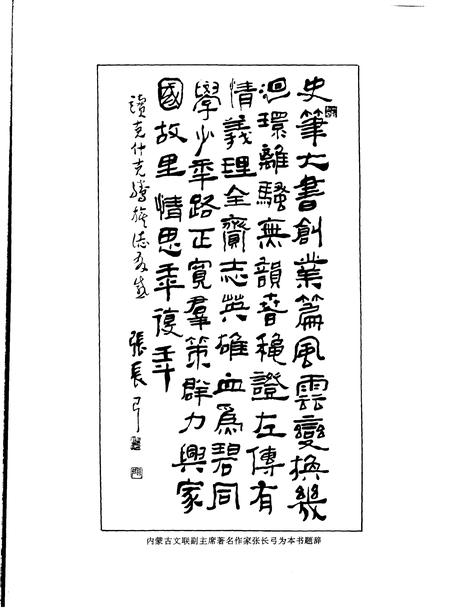 史筆大書創業篇風雲變換幾
洄環離騷無韻春穐證左傳有
情義理全齎志英雄血為碧同
學少年路正寬羣策群力興家
國故里情思年復年
讀克什克騰旗志有感 張長弓
内蒙古文联副主席著名作家张长弓为本书题辞